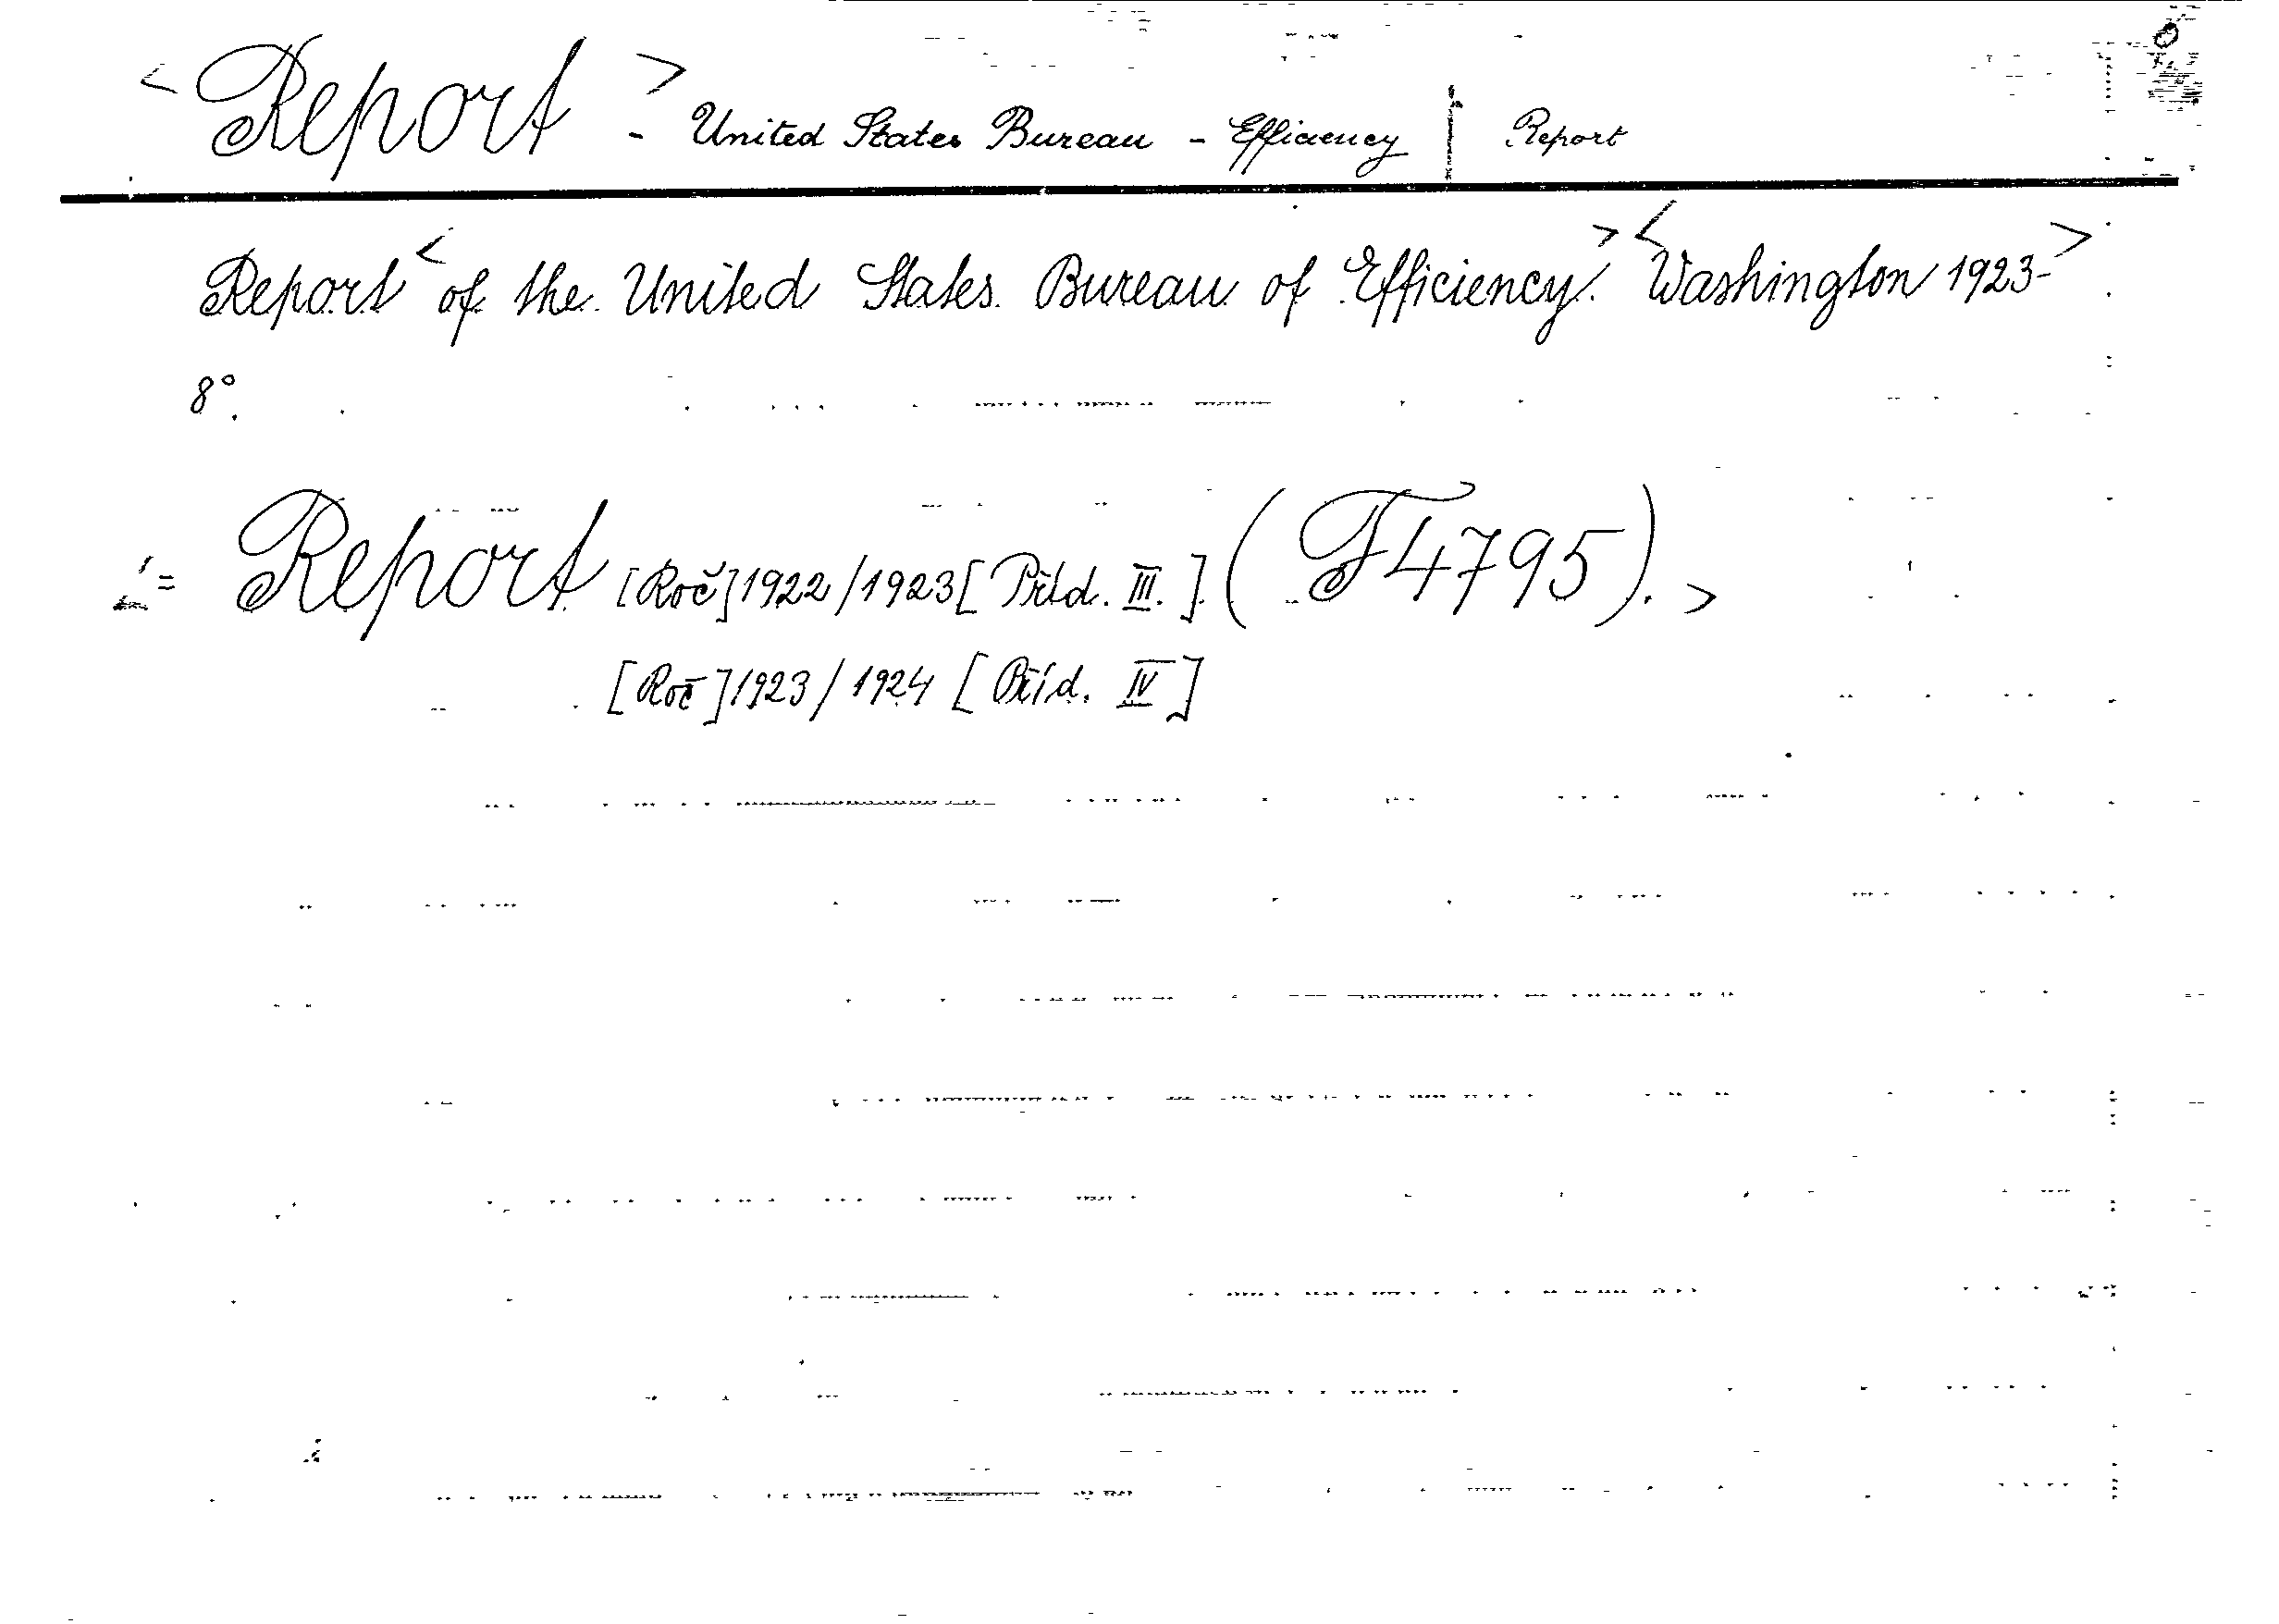 < Report > - United States Bureau - Efficiency | Report
Report < of the United States Bureau of Efficiency. > < Washington 1923- >
8°.
< = Report [Roč] 1922/1923 [Přid. III.] (F4795). >
[Roč] 1923/1924 [Příd. IV]